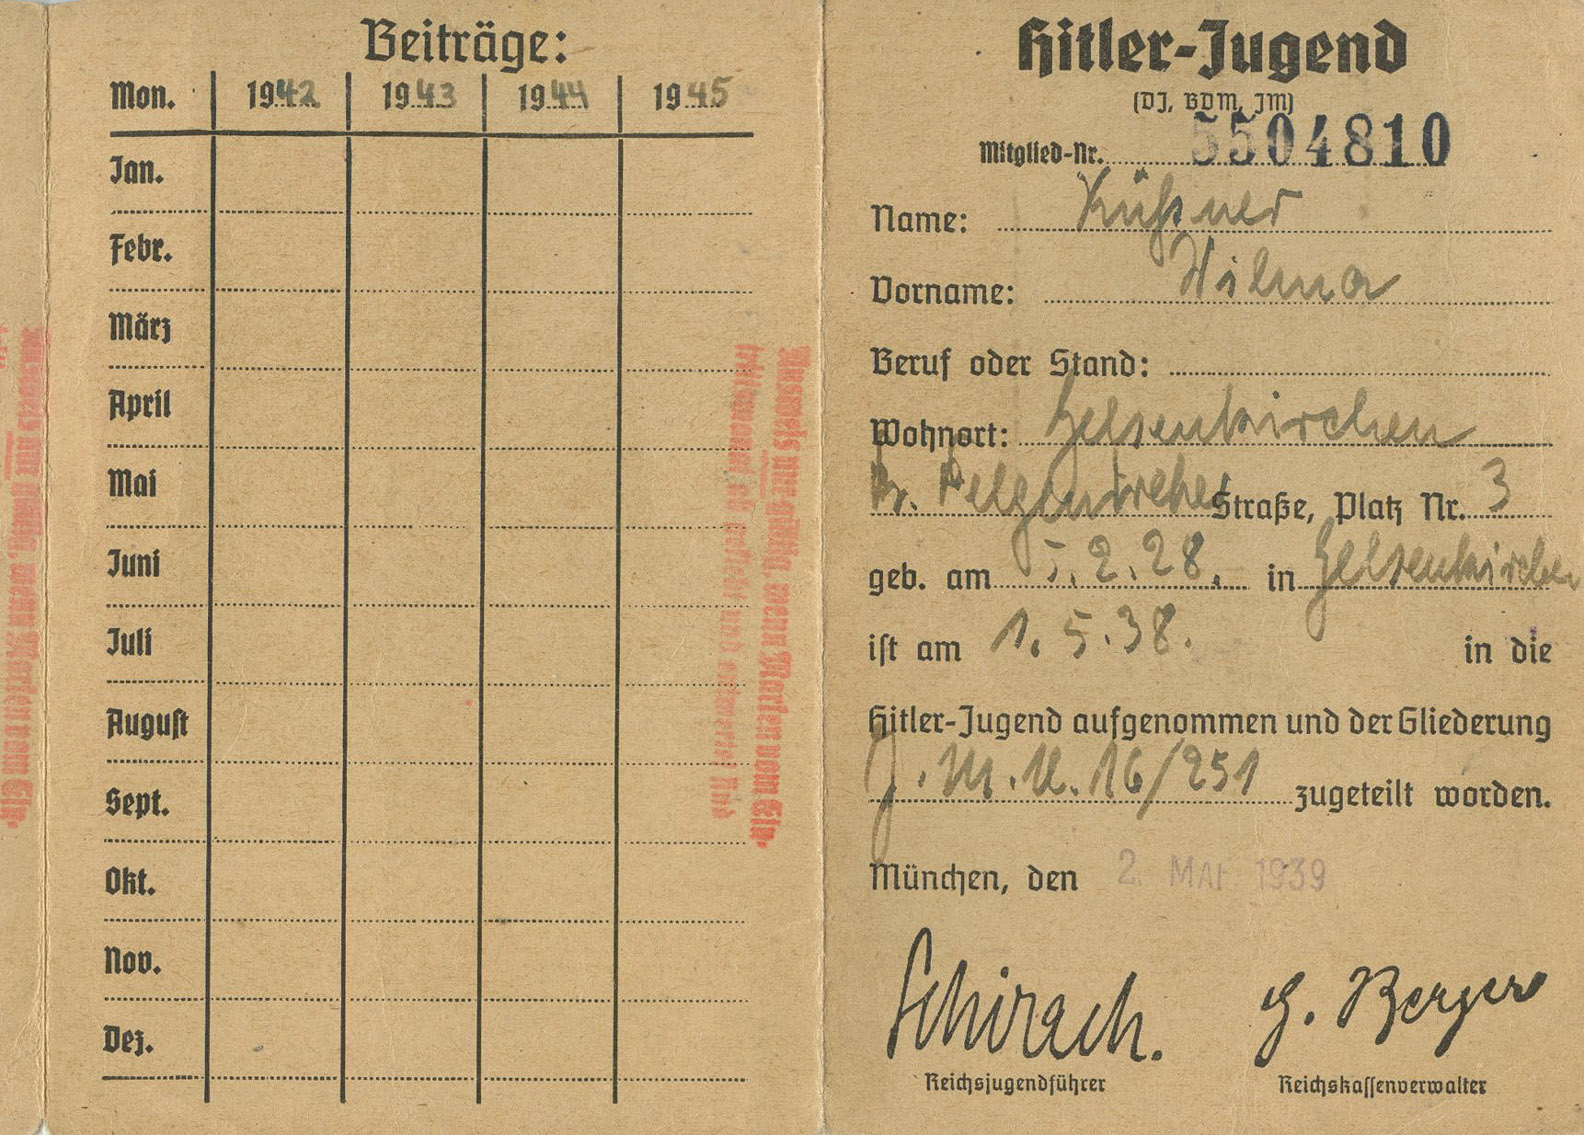 Beiträge:
Mon. 1942 1943 1944 1945
Jan.
Febr.
März
April
Mai
Juni
Juli
August
Sept.
Okt.
Nov.
Dez.
Ausweis nur gültig, wenn Marken vom Ein-
trittsmonat ab geklebt und entwertet sind
Ausweis nur gültig, wenn Marken vom Ein-
Hitler-Jugend
(DJ, BDM, JM)
Mitglied-Nr. 5504810
Name: Küßner
Vorname: Wilma
Beruf oder Stand:
Wohnort: Gelsenkirchen
Straße, Platz Nr. 3
geb. am 5.2.28. in Gelsenkirchen
ist am 1.5.38. in die
Hitler-Jugend aufgenommen und der Gliederung
J.M.U. 16/251 zugeteilt worden.
München, den 2. MAI 1939
Schirach.
Reichsjugendführer
G. Berger
Reichskassenverwalter